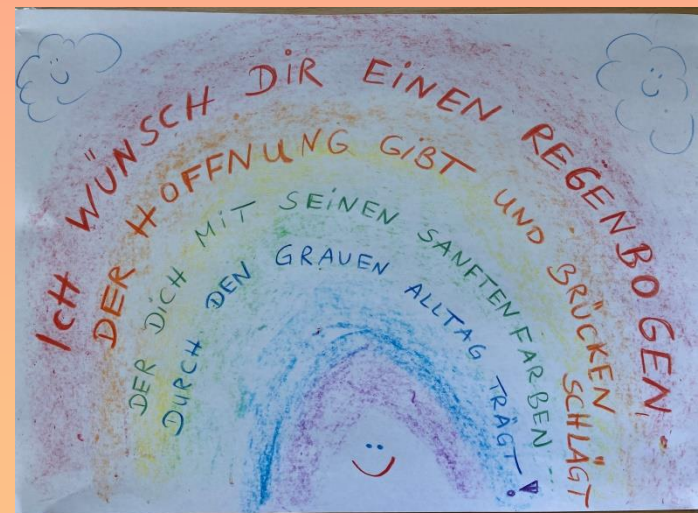 ICH WÜNSCH DIR EINEN REGENBOGEN,
DER HOFFNUNG GIBT UND BRÜCKEN SCHLÄGT
DER DICH MIT SEINEN SANFTEN FARBEN...
DURCH DEN GRAUEN ALLTAG TRÄGT!